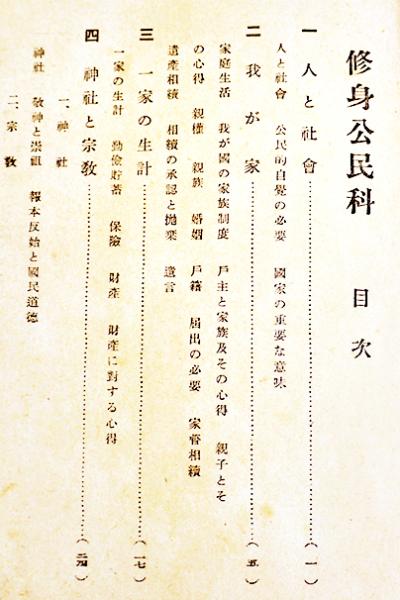 修身公民科　目次
一　人と社會……………………（一）
人と社會　公民的自覺の必要　國家の重要な意味
二　我が家……………………（五）
家庭生活　我が國の家族制度　戶主と家族及その心得　親子とそ
の心得　親權　親族　婚姻　戶籍　屆出の必要　家督相續
遺產相續　相續の承認と抛棄　遺言
三　一家の生計……………………（一七）
一家の生計　勤儉貯蓄　保險　財產　財產に對する心得
四　神社と宗敎……………………（二四）
一、神社
神社　敬神と崇祖　報本反始と國民道德
二、宗敎